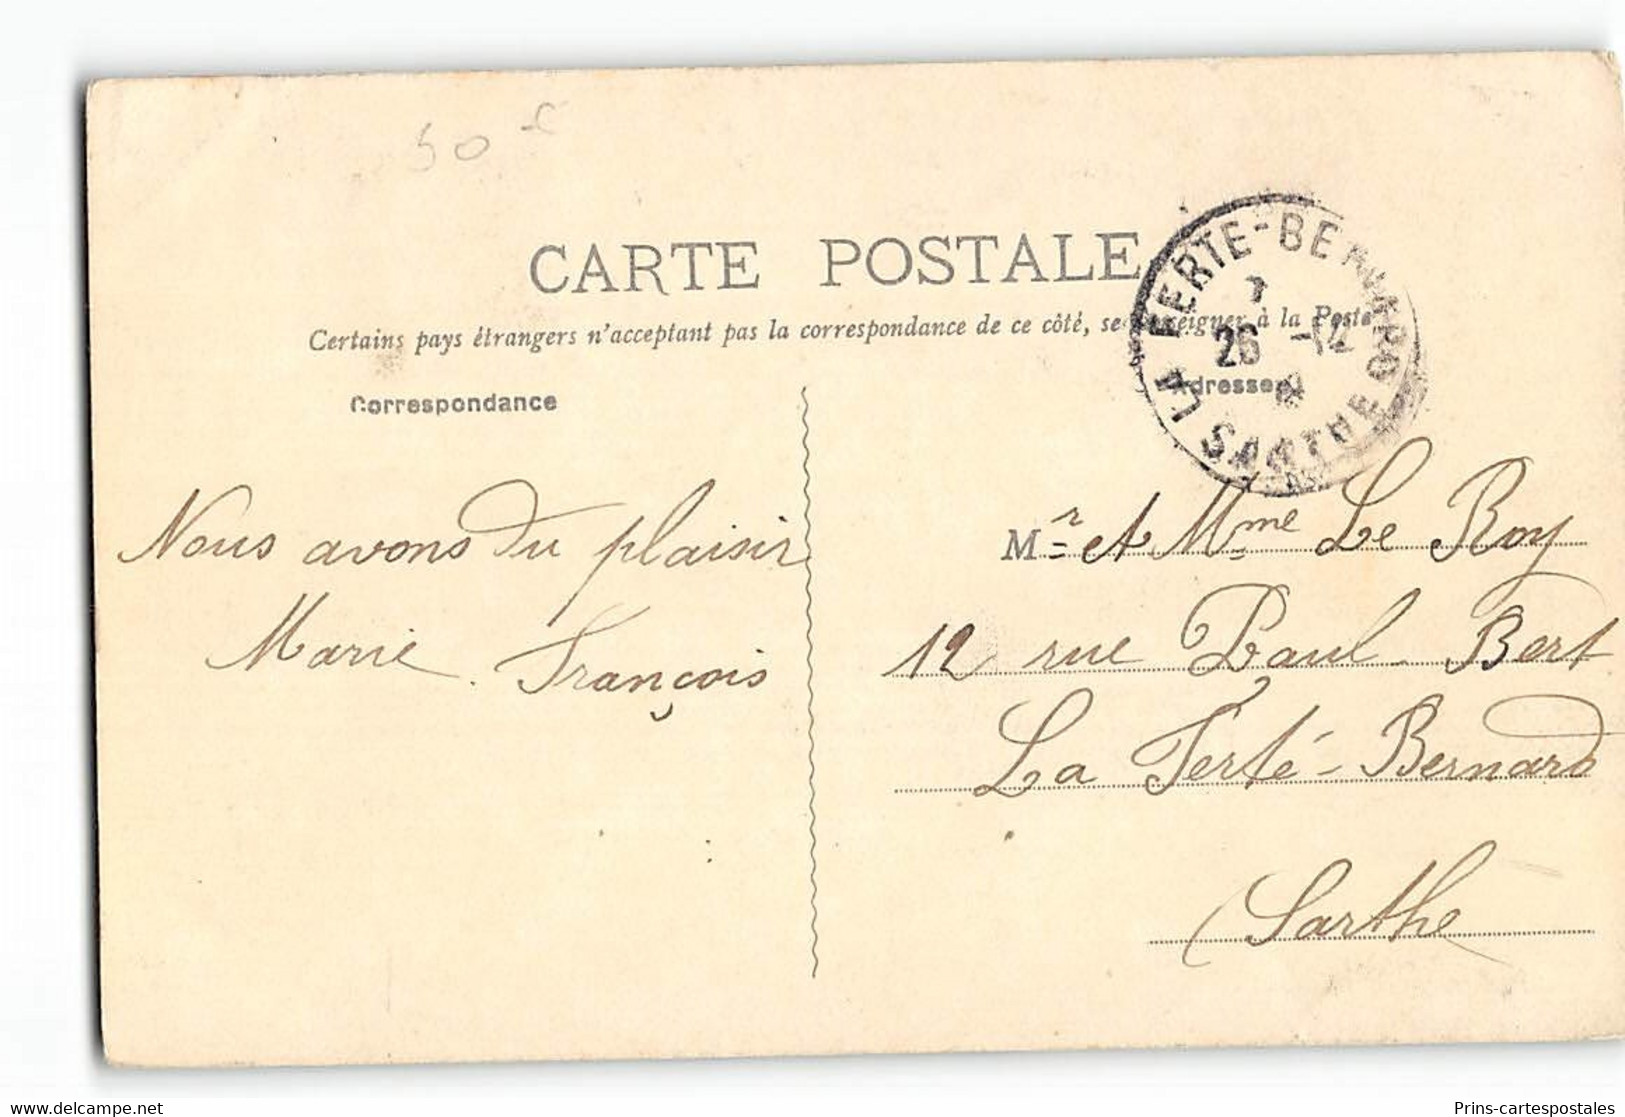 50 c
CARTE POSTALE
Certains pays étrangers n'acceptant pas la correspondance de ce côté, se renseigner à la Poste
Correspondance
Adresse
LA FERTE-BERNARD
26 -12
SARTHE
Nous avons du plaisir
Marie François
Mr et Mme Le Roy
12 rue Paul Bert
La Ferté-Bernard
Sarthe
delcampe.net
Prins-cartespostales